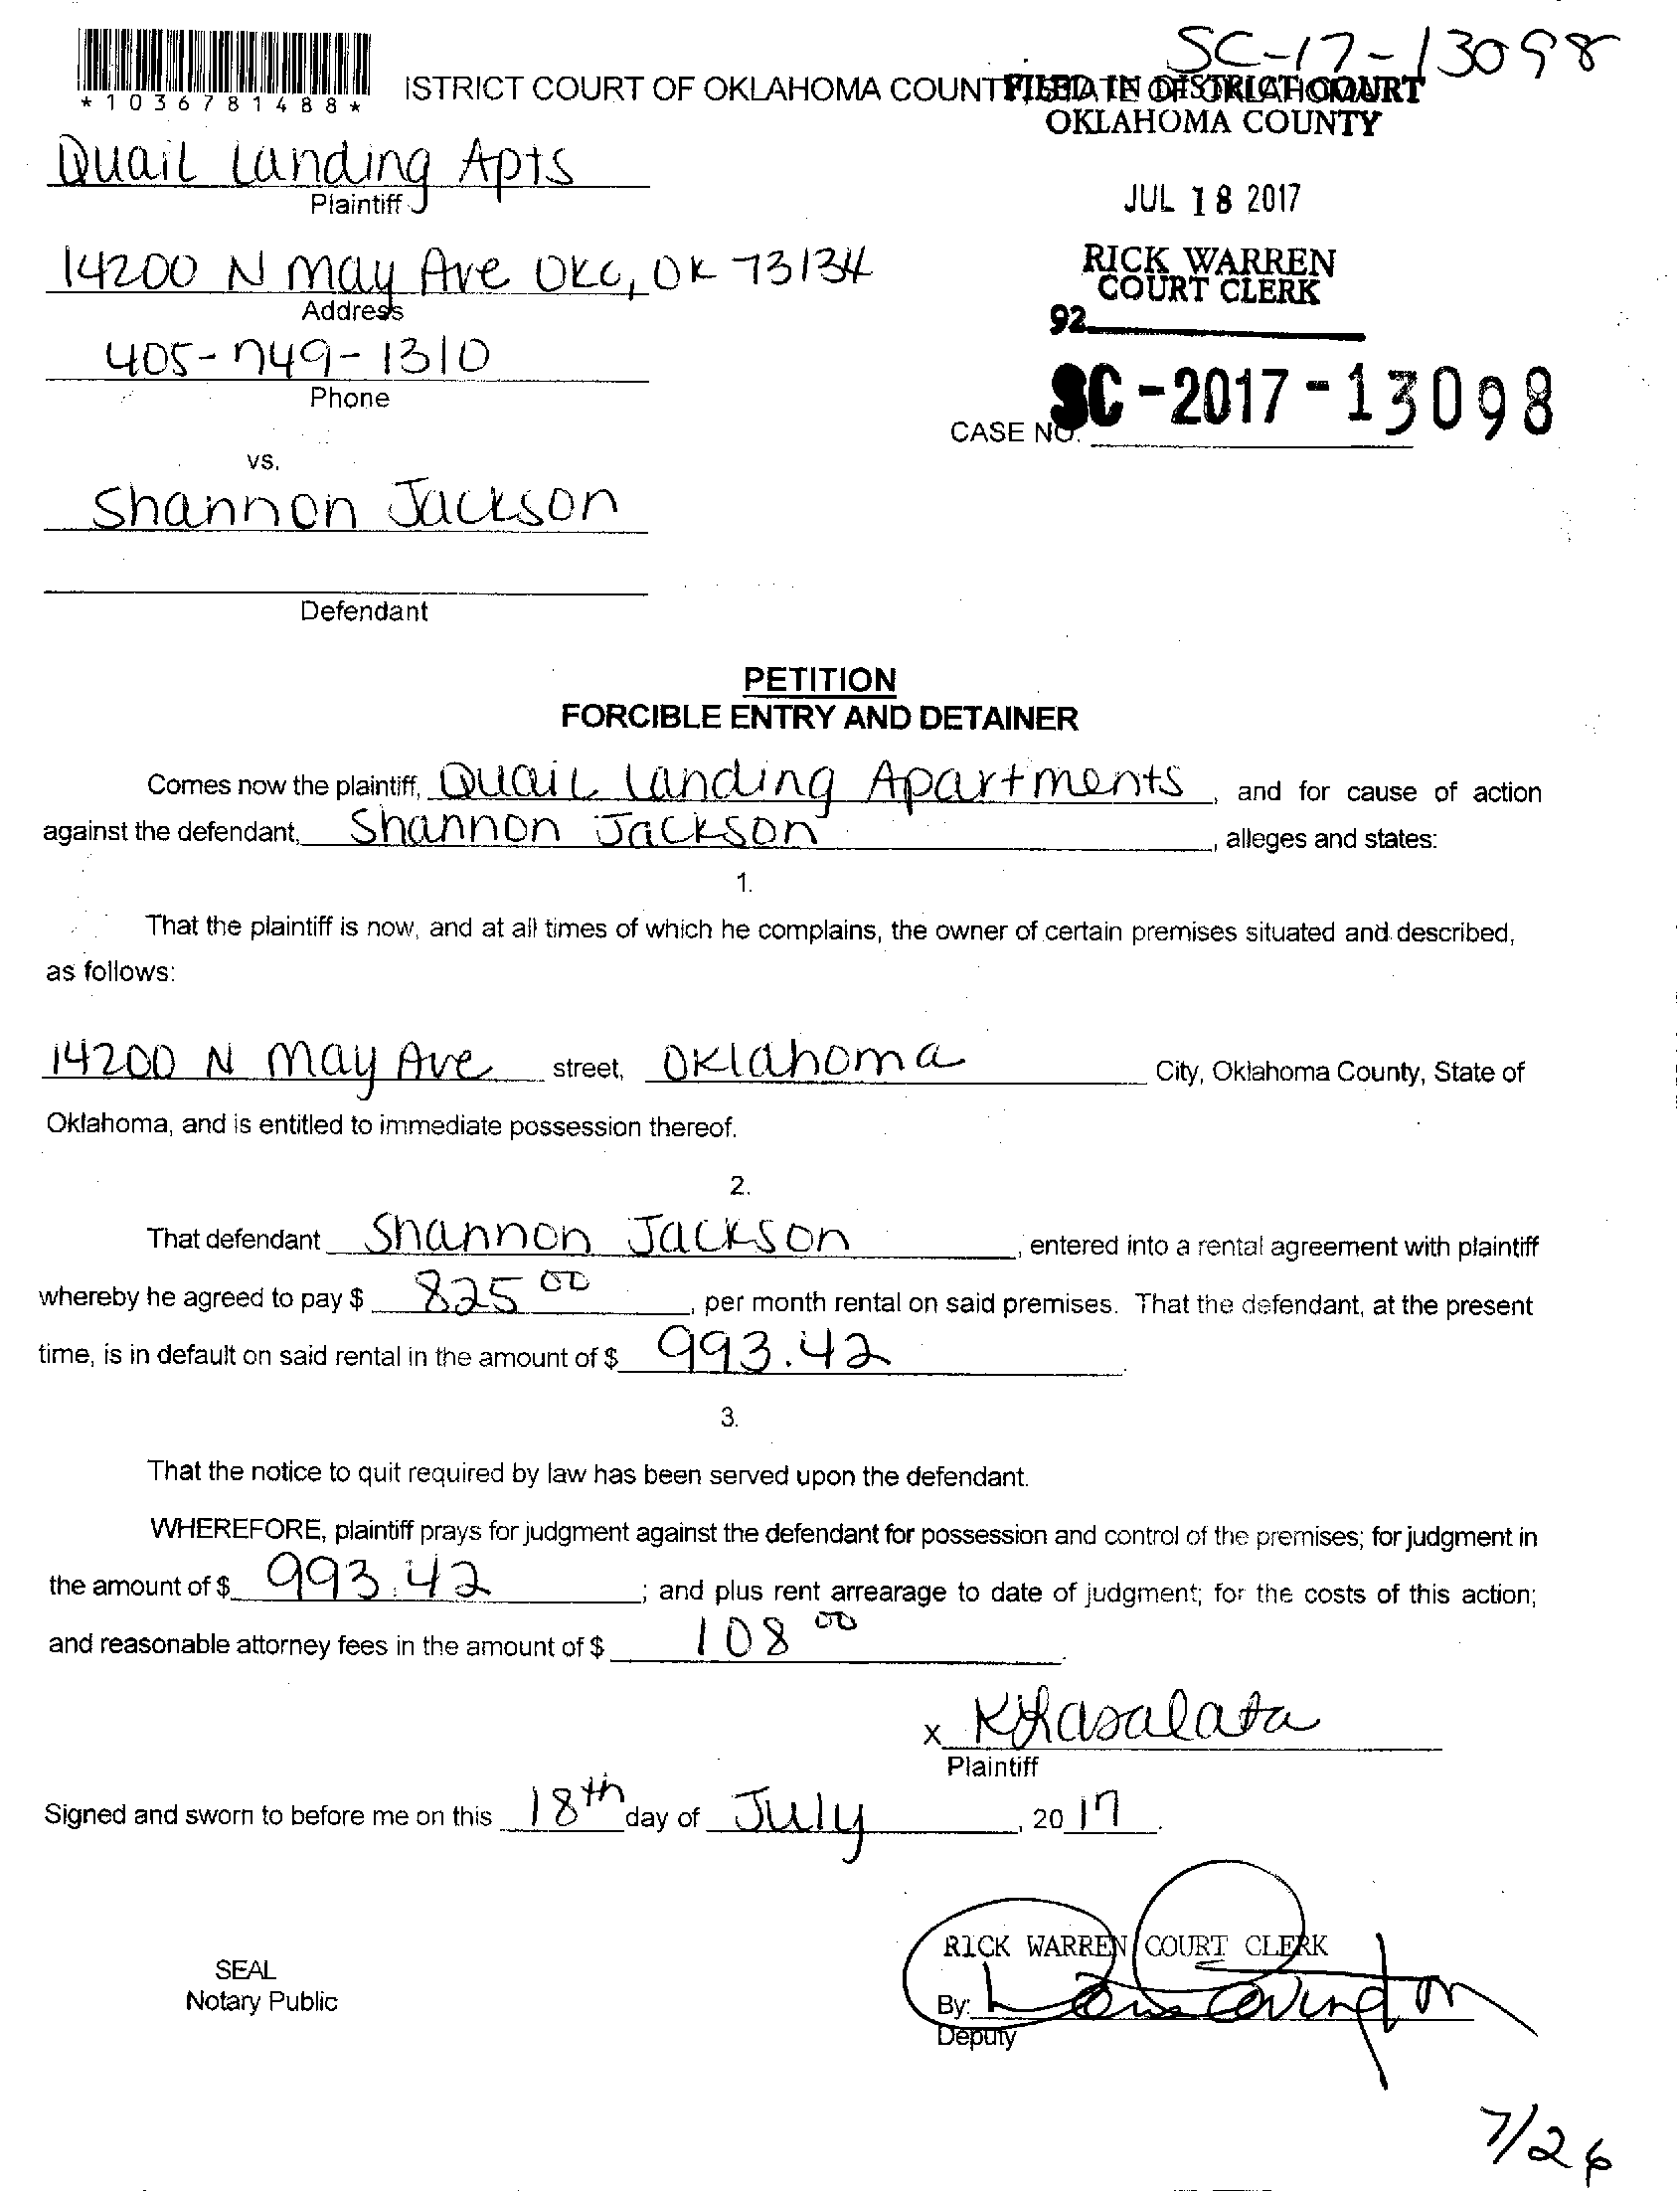 SC-17-13098
*1036781488*
ISTRICT COURT OF OKLAHOMA COUNTY, STATE OF OKLAHOMA
FILED IN DISTRICT COURT
OKLAHOMA COUNTY
Quail Landing Apts
Plaintiff
JUL 18 2017
14200 N May Ave OKC, OK 73134
Address
RICK WARREN
COURT CLERK
92
405-749-1310
Phone
CASE NO. SC-2017-13098
vs.
Shannon Jackson
Defendant
PETITION
FORCIBLE ENTRY AND DETAINER
Comes now the plaintiff, Quail Landing Apartments, and for cause of action
against the defendant, Shannon Jackson, alleges and states:
1.
That the plaintiff is now, and at all times of which he complains, the owner of certain premises situated and described,
as follows:
14200 N May Ave street, Oklahoma City, Oklahoma County, State of
Oklahoma, and is entitled to immediate possession thereof.
2.
That defendant Shannon Jackson, entered into a rental agreement with plaintiff
whereby he agreed to pay $ 825 00, per month rental on said premises. That the defendant, at the present
time, is in default on said rental in the amount of $ 993.42.
3.
That the notice to quit required by law has been served upon the defendant.
WHEREFORE, plaintiff prays for judgment against the defendant for possession and control of the premises; for judgment in
the amount of $ 993.42; and plus rent arrearage to date of judgment; for the costs of this action;
and reasonable attorney fees in the amount of $ 108 00.
X
Plaintiff
Signed and sworn to before me on this 18th day of July, 2017.
RICK WARREN COURT CLERK
SEAL
Notary Public
By: Covington
Deputy
7/26